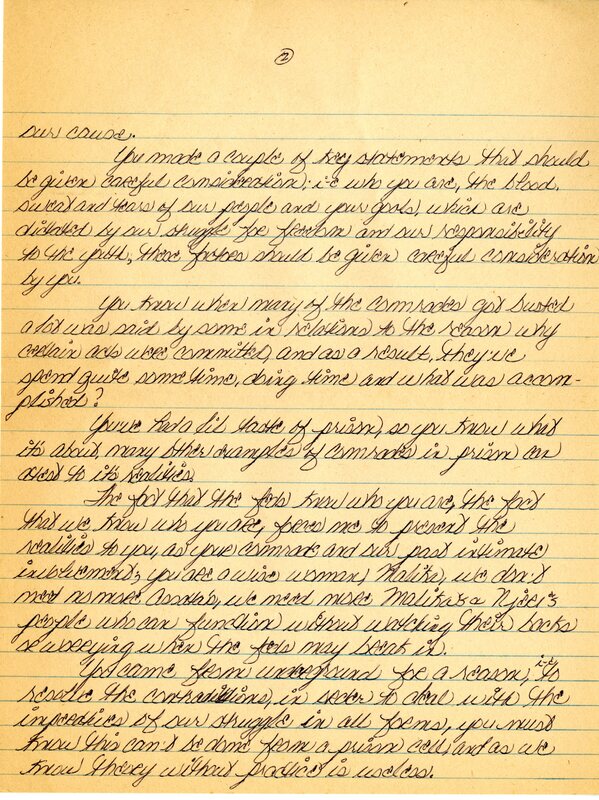 2
our cause.
You made a couple of key statements that should
be given careful consideration; i.e who you are, the blood,
sweat and tears of our people and your goals, which are
dictated by our struggle for freedom and our responsibility
to the youth, these factors should be given careful consideration
by you.
You know when many of the comrades got busted
a lot was said by some in relations to the reason why
certain acts were committed, and as a result, they've
spend quite some time, doing time and what was accom-
plished?
You've had a lil taste of prison, so you know what
its about, many other examples of comrades in prison can
attest to its realities.
The fact that the feds know who you are, the fact
that we know who you are, forces me to present the
realities to you, as your comrade and our past intimate
involvement; you are a wise woman, Malika, we don't
need no more Assatas, we need more Malikas &
people who can function without watching their backs
or worrying when the feds may break in.
You came from underground for a reason, i.e. to
resolve the contradictions, in order to deal with the
of our struggle in all forms, you must
know this can't be done from a prison cell, and as we
know theory without practice is useless.